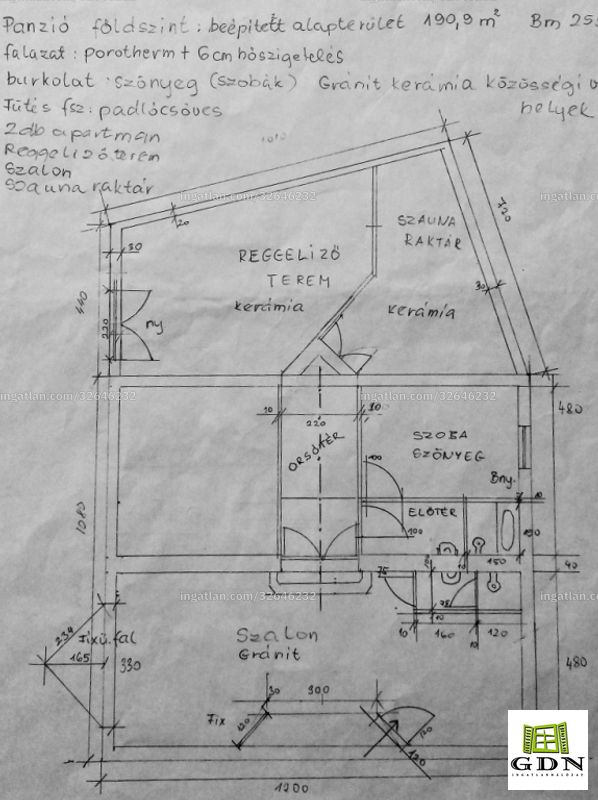 Panzió földszint: beépített alapterület 190,9 m² Bm 255
falazat: porotherm + 6cm hőszigetelés
burkolat: szőnyeg (szobák) Gránit kerámia közösségi
helyek
Fűtés fsz: padlócsöves
2db apartman
Reggeliző terem
Szalon
Szauna raktár
1010
ingatlan.com/32646232
ingatlan.com/32646232
20
720
30
REGGELIZŐ
TEREM
kerámia
SZAUNA
RAKTÁR
kerámia
30
440
220
ny
ingatlan.com/32646232
ingatlan.com/32646232
10
220
10
480
ORSÓTÉR
SZOBA
SZŐNYEG
100
Bny.
10
ELŐTÉR
100
1080
150
190
75
40
ingatlan.com/32646232
ingatlan.com/32646232
234
Fixü.fal
165
330
Szalon
Gránit
10
10
160
10
120
480
30
300
Fix
120
120
120
1200
GDN
INGATLANHÁLÓZAT